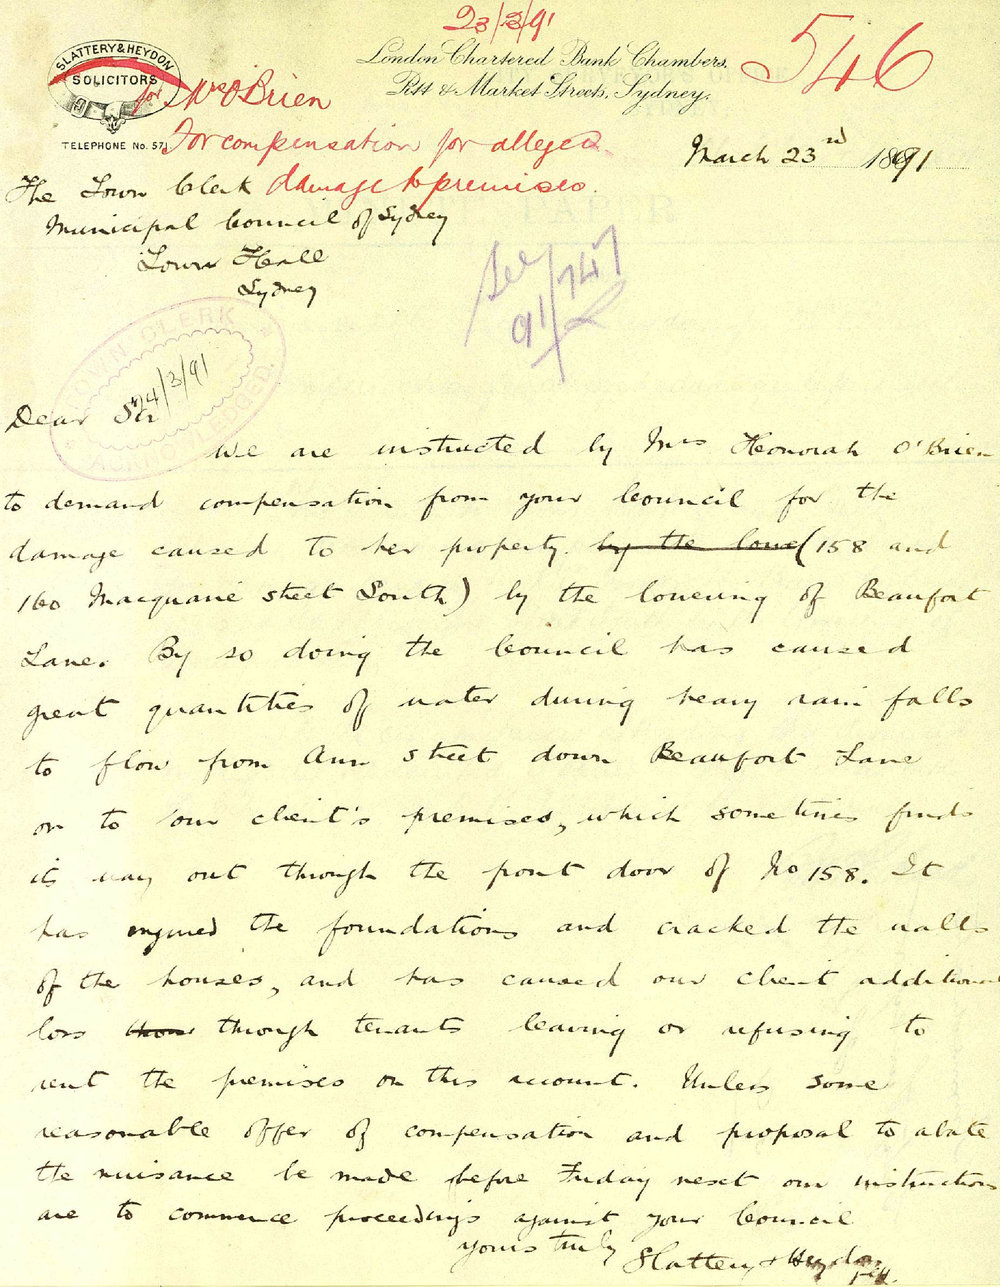 23/3/91
546
SLATTERY & HEYDON
SOLICITORS
TELEPHONE No. 571
London Chartered Bank Chambers,
Pitt & Market Streets, Sydney,
for Mrs O'Brien
For compensation for alleged
damage to premises.
March 23rd 1891
The Town Clerk
Municipal Council of Sydney
Town Hall
Sydney
See
91/747
TOWN CLERK
24/3/91
ACKNOWLEDGED.
Dear Sir
We are instructed by Mrs Honorah O'Brien
to demand compensation from your Council for the
damage caused to her property. by the lowe (158 and
160 Macquarie street South) by the lowering of Beaufort
Lane. By so doing the Council has caused
great quantities of water during heavy rain falls
to flow from Ann street down Beaufort Lane
on to our client's premises, which sometimes finds
its way out through the front door of No 158. It
has injured the foundations and cracked the walls
of the houses, and has caused our client additional
loss through tenants leaving or refusing to
rent the premises on this account. Unless some
reasonable offer of compensation and proposal to abate
the nuisance be made before Friday next our instructions
are to commence proceedings against your Council
Yours truly
Slattery & Heydon